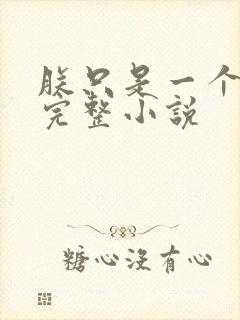 朕只是一个
完整小说
糖心没有心